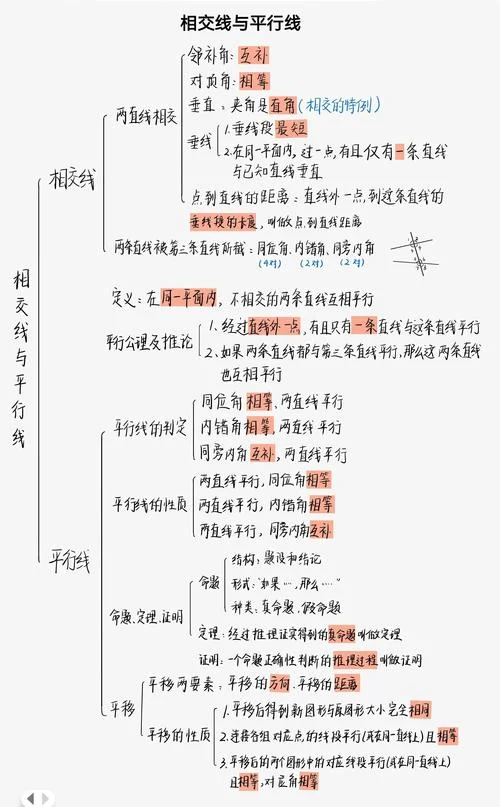 相交线与平行线
相交线与平行线
相交线
两直线相交
邻补角：互补
对顶角：相等
垂直：夹角是直角（相交的特例）
垂线
1.垂线段最短
2.在同一平面内，过一点，有且仅有一条直线
与已知直线垂直
点到直线的距离：直线外一点，到这条直线的
垂线段的长度，叫做点到直线距离
两条直线被第三条直线所截：同位角、内错角、同旁内角
(4对) (2对) (2对)
平行线
定义：在同一平面内，不相交的两条直线互相平行
平行公理及推论
1、经过直线外一点，有且只有一条直线与这条直线平行
2、如果两条直线都与第三条直线平行，那么这两条直线
也互相平行
平行线的判定
同位角相等、两直线平行
内错角相等，两直线平行
同旁内角互补，两直线平行
平行线的性质
两直线平行，同位角相等
两直线平行，内错角相等
两直线平行，同旁内角互补
命题、定理、证明
命题
结构：题设和结论
形式：“如果…，那么…”
种类：真命题、假命题
定理：经过推理证实得到的真命题叫做定理
证明：一个命题正确性判断的推理过程叫做证明
平移
平移两要素：平移的方向、平移的距离
平移的性质
1.平移后得到新图形与原图形大小完全相同
2.连接各组对应点的线段平行(或在同一直线上)且相等
3.平移后的两个图形中的对应线段平行(或在同一直线上)
且相等，对应角相等